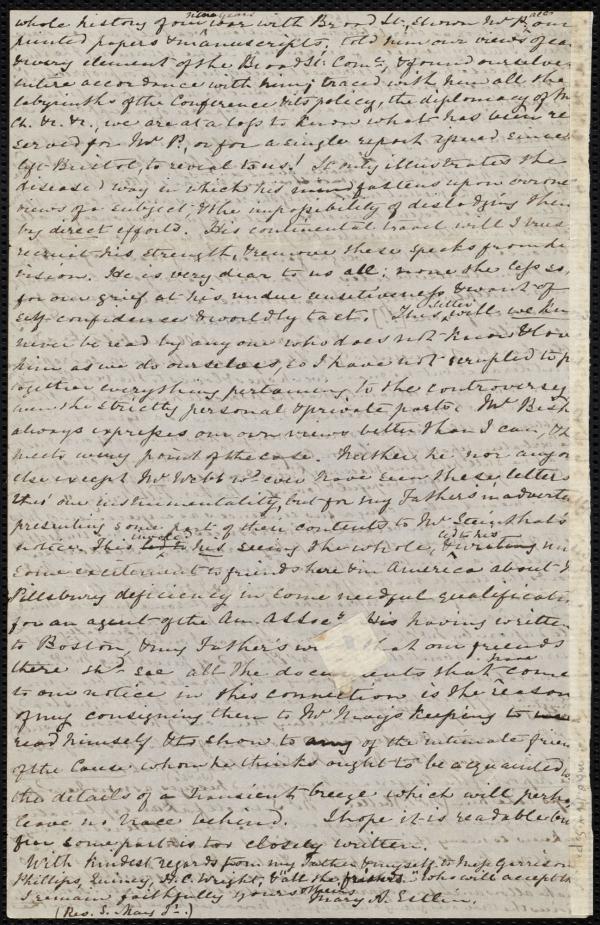 whole history of our nine years' war with Broad St., shown Mr P. all our
printed papers & manuscripts, told him our views of ea
& every element of the Broad St. Comee, & found ourselves
entire accordance with him; traced with him all the
labyrinths of the Conference & its policy, the diplomacy of M
Ch. &c. &c., we are at a loss to know what has been re
served for Mr P., or for a single report issued since
left Bristol, to reveal to us! It only illustrates the
diseased way in which his mind fastens upon overone
views of a subject, & the impossibility of dislodging them
by direct efforts. His continental travel will I trus
recruit his strength, & remove these specks from hi
vision. He is very dear to us all; none the less so,
for our grief at his undue sensitiveness & want of
self-confidence & worldly tact. This letter will we kn
never be read by any one who does not know & love
him as we do ourselves, so I have not scrupled to p
together everything pertaining to the controversy
even the strictly personal & private parts. Mr Bish
always expresses our own views better than I can, & h
meets every point of the case. Neither he nor anyon
else except Mr Webb wd ever have seen these letters
thro' our instrumentality, but for my Father's inadverte
presenting some part of their contents to Mr Steinthal's
notice. This involved his seeing the whole, & led to his writing
some excitement to friends here & in America about
Pillsbury deficiency in some needful qualificatio
for an agent of the Am. Assocn. His having written
to Boston, & my Father's wish that our friends
there shd see all the documents that have come
to our notice in this connection is the reason
of my consigning them to Mr May's keeping to
read himself & to show to any of the intimate frien
of the Cause whom he thinks ought to be acquainted w
the details of a transient breeze which will perha
leave no trace behind. I hope it is readable but
fear some part is too closely written.
With kindest regards from my Father & myself to Messrs Garrison
Phillips, Quincy, H. C. Wright, & "all the friends" others who will accept th
I remain faithfully yours Mary A. Estlin.
(Rev. S. May Jr.)